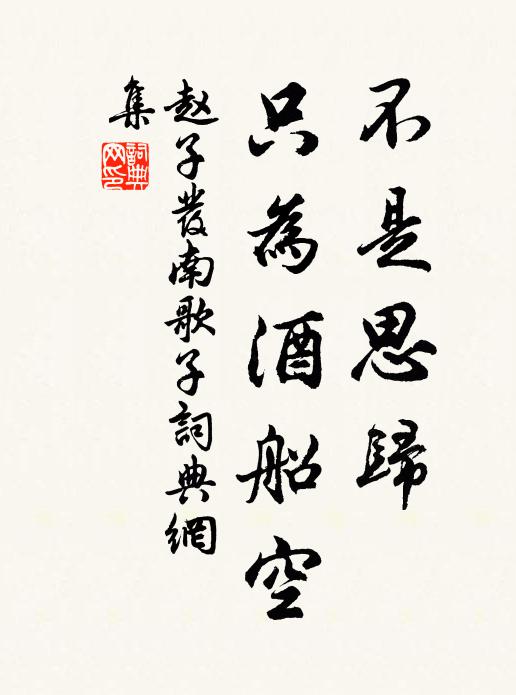 不是思歸
只為酒船空
趙子發南歌子詞典網
集
詞典网印